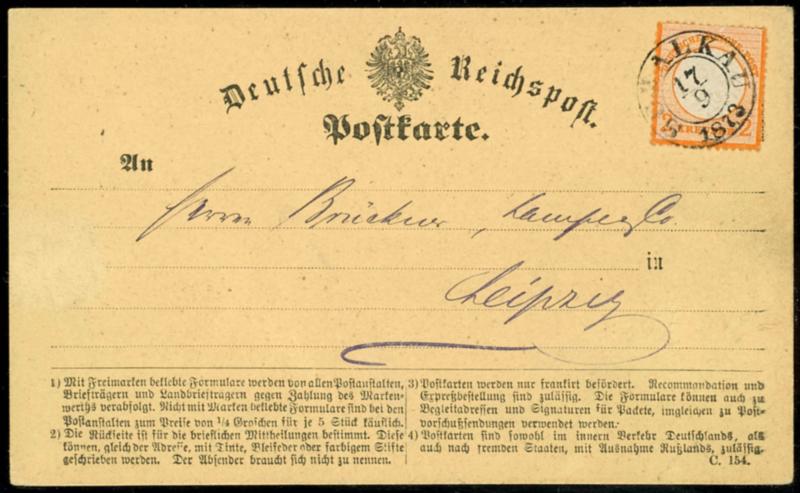 Deutsche Reichspost.
Postkarte.
SCHALKAU
17
9
1873
KREUZER
2
An
Herren Brückner, Lampe & Co.
in
Leipzig
1) Mit Freimarken beklebte Formulare werden von allen Postanstalten,
Briefträgern und Landbriefträgern gegen Zahlung des Marken-
werths verabfolgt. Nicht mit Marken beklebte Formulare sind bei den
Postanstalten zum Preise von 1/4 Groschen für je 5 Stück käuflich.
2) Die Rückseite ist für die brieflichen Mittheilungen bestimmt. Diese
können, gleich der Adresse, mit Tinte, Bleifeder oder farbigem Stifte
geschrieben werden. Der Absender braucht sich nicht zu nennen.
3) Postkarten werden nur frankirt befördert. Recommandation und
Expreßbestellung sind zulässig. Die Formulare können auch zu
Begleitadressen und Signaturen für Packete, imgleichen zu Post-
vorschußsendungen verwendet werden.
4) Postkarten sind sowohl im innern Verkehr Deutschlands, als
auch nach fremden Staaten, mit Ausnahme Rußlands, zulässig.
C. 154.